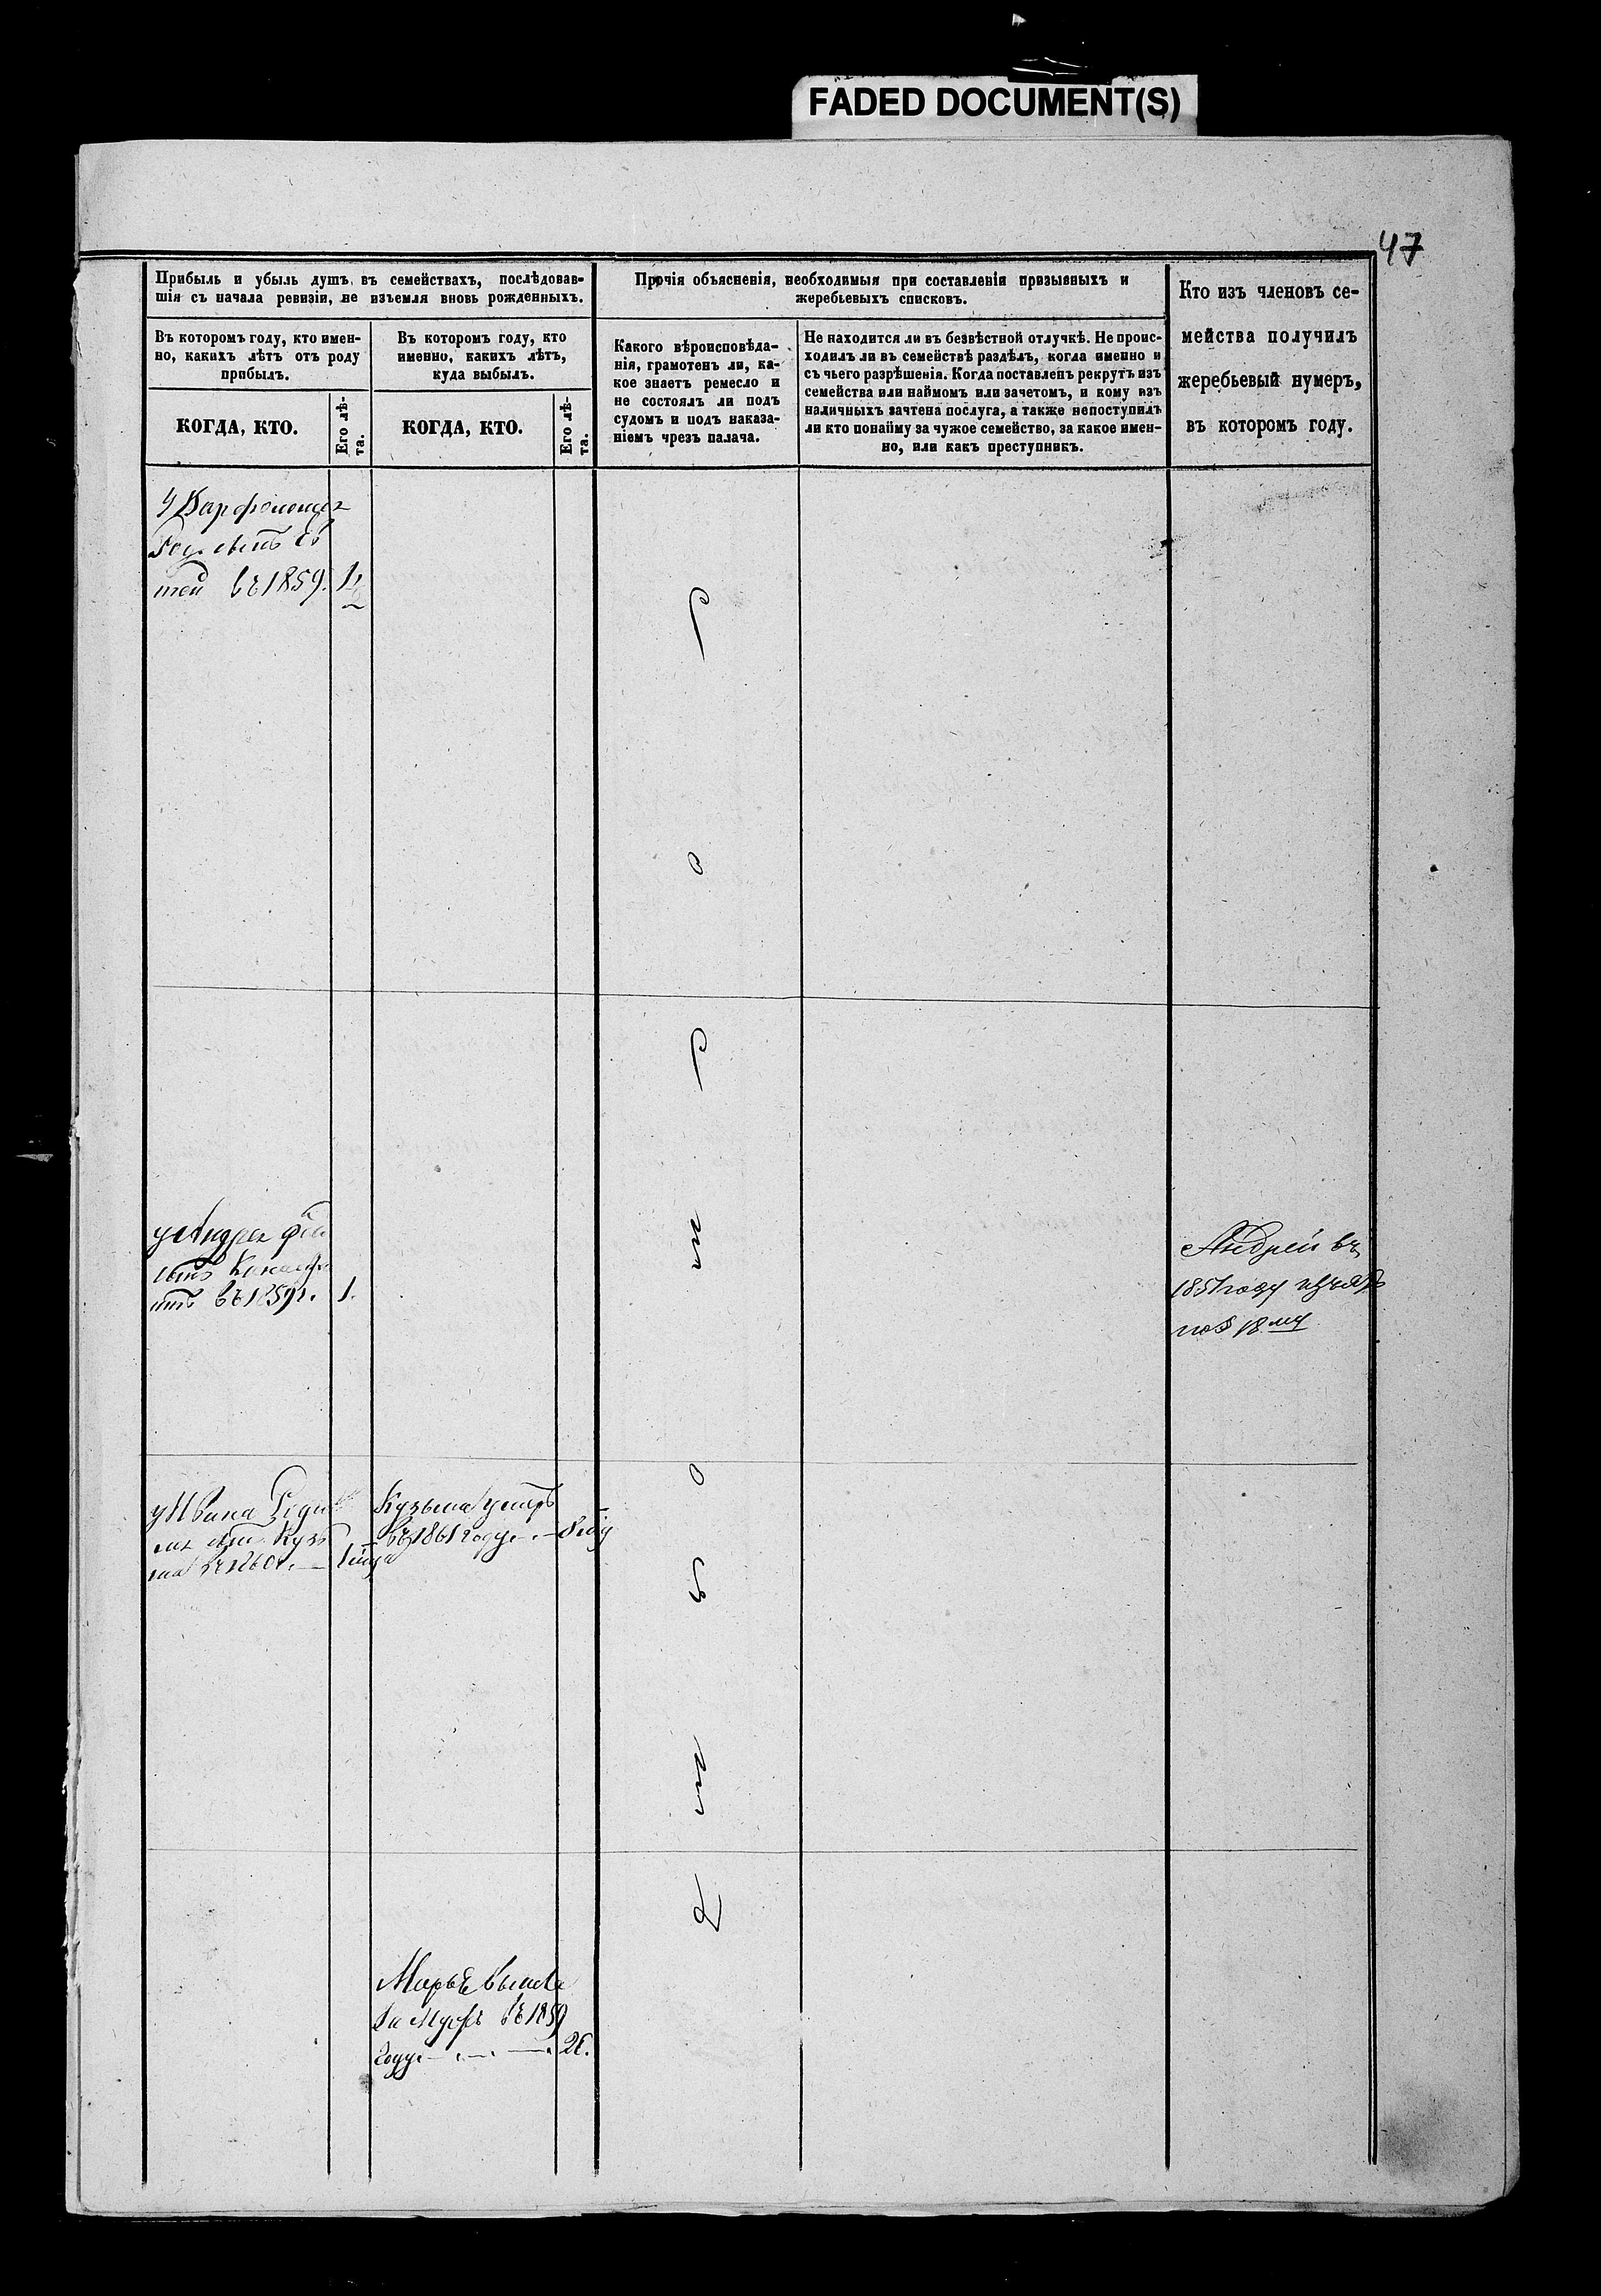 FADED DOCUMENT(S)
47
Прибыль и убыль душъ въ семействахъ, послѣдовав-
шія съ начала ревизіи, не изъемля вновь рожденныхъ.
Въ которомъ году, кто имен-
но, какихъ лѣтъ отъ роду
прибылъ.
КОГДА, КТО.
Его лѣ-
та.
Въ которомъ году, кто
именно, какихъ лѣтъ,
куда выбылъ.
КОГДА, КТО.
Его лѣ-
та.
Прочія объясненія, необходимыя при составленіи призывныхъ и
жеребьевыхъ списковъ.
Какого вѣроисповѣда-
нія, грамотенъ ли, ка-
кое знаетъ ремесло и
не состоялъ ли подъ
судомъ и подъ наказа-
ніемъ чрезъ палача.
Не находится ли въ безвѣстной отлучкѣ. Не проис-
ходилъ ли въ семействѣ раздѣлъ, когда именно и
съ чьего разрѣшенія. Когда поставленъ рекрутъ изъ
семейства или наймомъ или зачетомъ, и кому изъ
наличныхъ зачтена послуга, а также непоступилъ
ли кто понайму за чужое семейство, за какое имен-
но, или какъ преступникъ.
Кто изъ членовъ се-
мейства получилъ
жеребьевый нумеръ,
въ которомъ году.
У Варфоломея
въ 1859.
у Андрея
сынъ
въ 1859г. 1.
Андрей въ
году
18
у Ивана
Кузь
ма
Кузьма умеръ
въ 1861 году
Марья вышла
За Мужъ въ 1859
году 26.